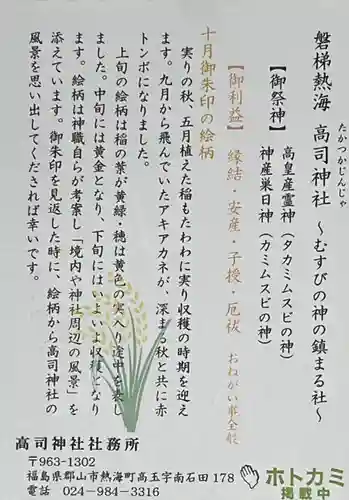 磐梯熱海 高司神社 ～むすびの神の鎮まる社～
たかつかじんじゃ
【御祭神】
高皇産霊神（タカミムスビの神）
神産巣日神（カミムスビの神）
【御利益】 縁結・安産・子授・厄祓 おねがい事全般
十月御朱印の絵柄
実りの秋、五月植えた稲もたわわに実り収穫の時期を迎え
ます。九月から飛んでいたアキアカネが、深まる秋と共に赤
トンボになりました。
上旬の絵柄は稲の葉が黄緑、穂は黄色の実入り途中を表し
ました。中旬には黄金となり、下旬にはいよいよ収穫となり
ます。絵柄は神職自らが考案し「境内や神社周辺の風景」を
添えています。御朱印を見返した時に、絵柄から高司神社の
風景を思い出してくだされば幸いです。
高司神社社務所
〒963-1302
福島県郡山市熱海町高玉字南石田 178
電話 024-984-3316
ホトカミ
掲載中